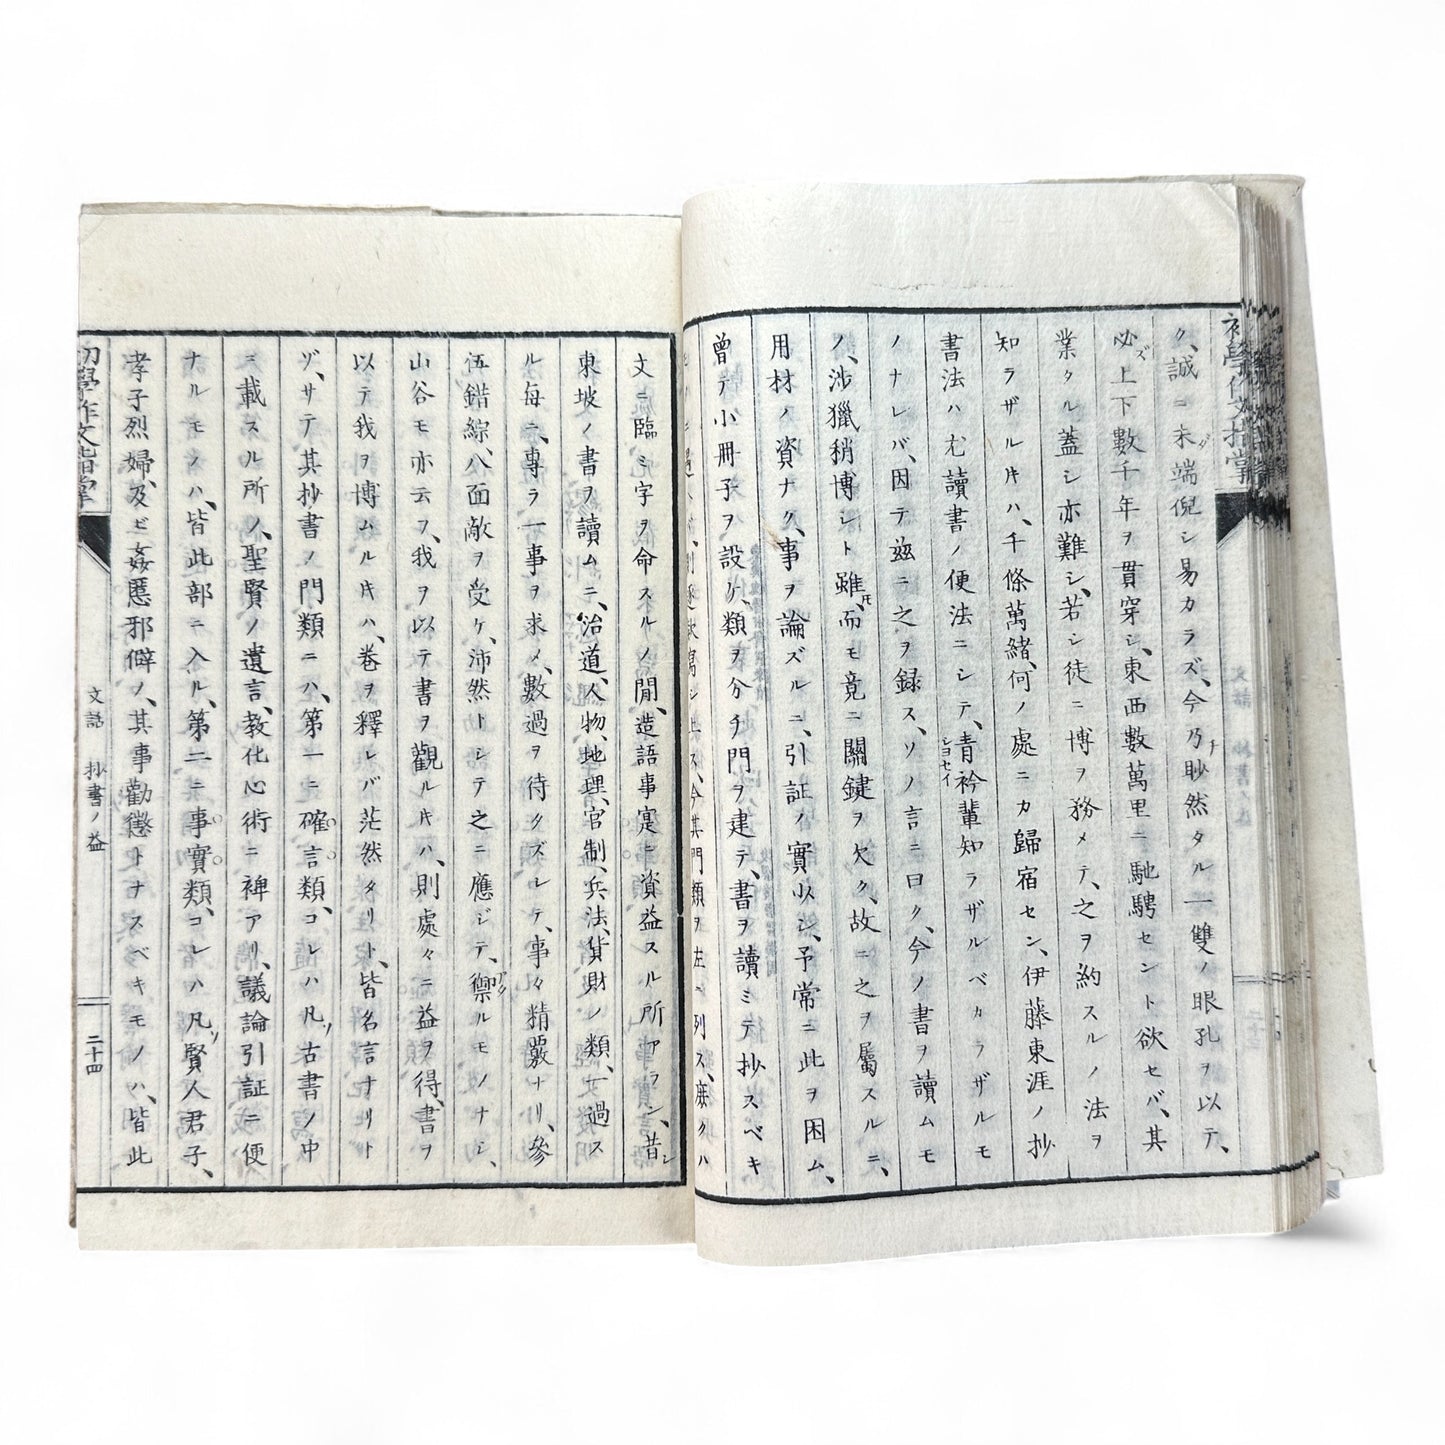 初學作文指掌
ク、誠ニ未ダ端倪シ易カラズ、今乃チ眇然タル一雙ノ眼孔ヲ以テ、
必ズ上下數千年ヲ貫穿シ、東西數萬里ニ馳騁セント欲セバ、其
業タル蓋シ亦難シ、若シ徒ニ博ヲ務メテ、之ヲ約スルノ法ヲ
知ラザルキハ、千條萬緒、何ノ處ニカ歸宿セン、伊藤東涯ノ抄
書法ハ尤讀書ノ便法ニシテ、青衿輩知ラザルベカラザルモ
ショセイ
ノナレバ、因テ茲ニ之ヲ録ス、ソノ言ニ曰ク、今ノ書ヲ讀ムモ
ノ、渉獵稍博シト雖モ、而モ竟ニ關鍵ヲ欠ク、故ニ之ヲ屬スルニ、
用材ノ資ナク、事ヲ論ズルニ、引証ノ實少シ、予常ニ此ヲ困ム、
曾テ小冊子ヲ設ケ、類ヲ分チ門ヲ建テ、書ヲ讀ミテ抄スベキ
今其門類ヲ左ニ列ス、庶クハ
文ニ臨ミ字ヲ命スルノ間、造語事寔ニ資益スル所アラン、昔シ
東坡ノ書ヲ讀ムニ、治道、人物、地理、官制、兵法、貨財ノ類、一過ス
ル每ニ、專ラ一事ヲ求メ、數過ヲ待タズレテ、事々精覈ナリ、參
伍錯綜、八面敵ヲ受ケ、沛然トシテ之ニ應ジテ、禦グルモノナシ、
山谷モ亦云フ、我ヲ以テ書ヲ觀ルキハ、則處々ニ益ヲ得、書ヲ
以テ我ヲ博ムルキハ、巻ヲ釋レバ茫然タリト、皆名言ナリト
ゾ、サテ其抄書ノ門類ニハ、第一ニ確言類、コレハ凡ソ古書ノ中
ニ載スル所ノ、聖賢ノ遺言、教化心術ニ裨アリ、議論引証ニ便
ナルモノハ、皆此部ニ入ル、第二ニ事實類、コレハ凡ソ賢人君子、
孝子烈婦、及ビ姦慝邪僻ノ、其事勸懲トナスベキモノハ、皆此
初學作文指掌
文話 抄書ノ益
二十四